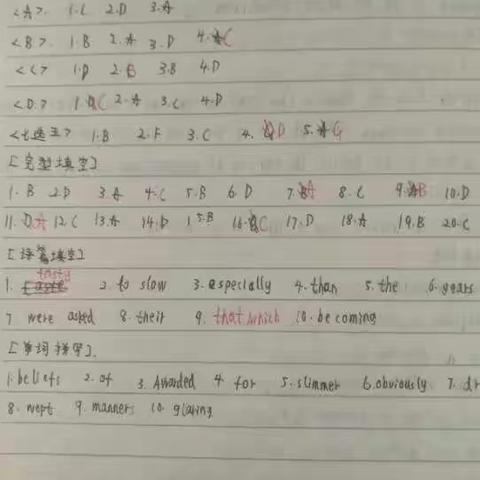 <A>. 1.C 2.D 3.A
<B>. 1.B 2.A 3.D 4.C
<C> 1.D 2.B 3.B 4.D
<D> 1.C 2.A 3.C 4.D
<七选五> 1.B 2.F 3.C 4.D 5.G
[完型填空]
1.B 2.D 3.A 4.C 5.B 6.D 7.A 8.C 9.B 10.D
11.A 12.C 13.A 14.D 15.B 16.C 17.D 18.A 19.B 20.C
[语篇填空]
1. tasty 2. to slow 3. especially 4. than 5. the 6. years
7. were asked 8. their 9. that which 10. becoming
[单词拼写].
1. beliefs 2. of 3. Awarded 4. for 5. slimmer 6. obviously 7.
8. wept 9. manners 10. glaring